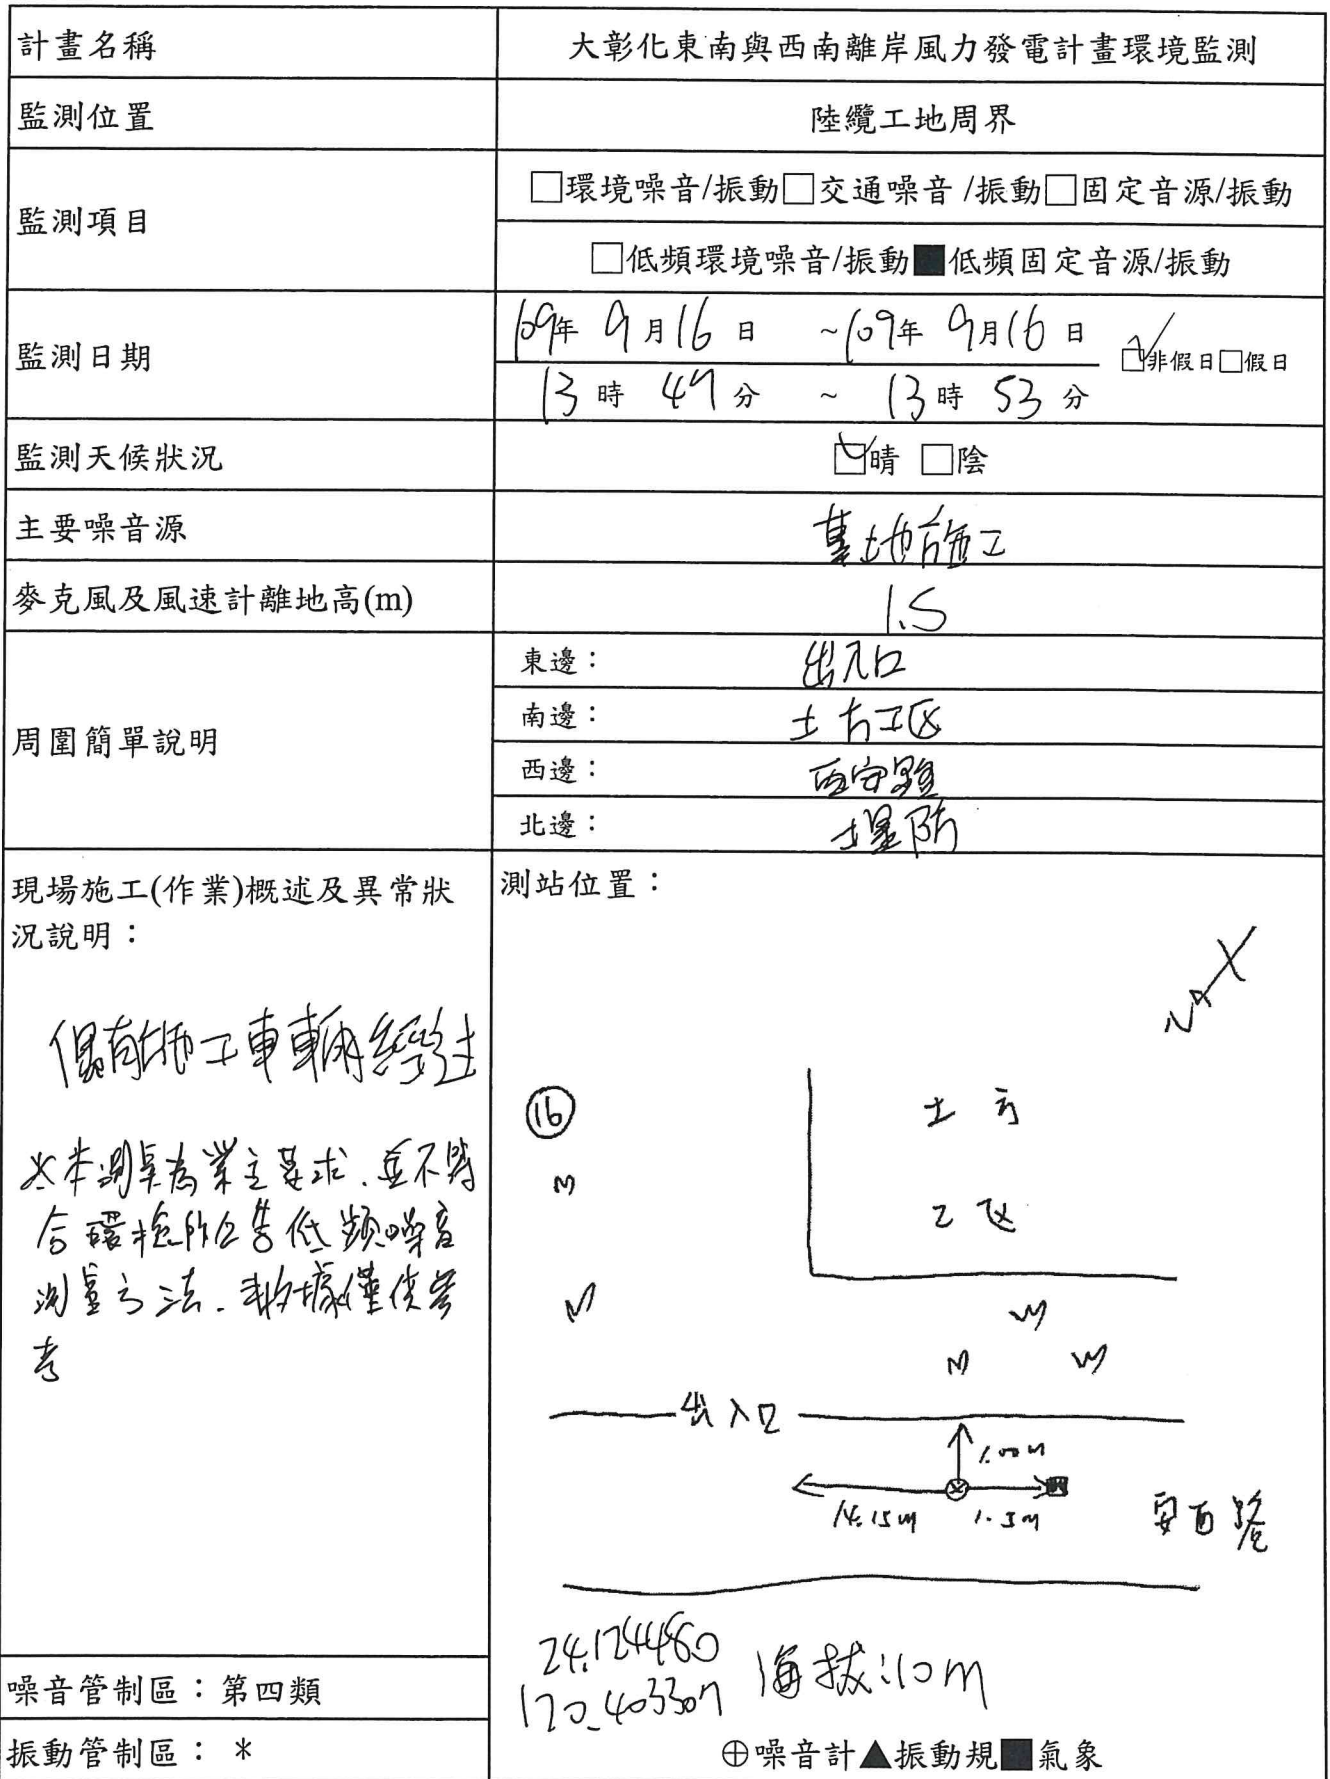 計畫名稱 大彰化東南與西南離岸風力發電計畫環境監測
監測位置 陸纜工地周界
監測項目 □環境噪音/振動□交通噪音 /振動□固定音源/振動
□低頻環境噪音/振動■低頻固定音源/振動
監測日期 109年 9月16日 ~109年 9月16日 ☑非假日□假日
13時 分 ~ 13時 53分
監測天候狀況 ☑晴 □陰
主要噪音源 基地施工
麥克風及風速計離地高(m) 1.5
周圍簡單說明
東邊： 出入口
南邊： 土方工区
西邊：
北邊： 堤防
現場施工(作業)概述及異常狀
況說明：
偶有施工車輛經過
※本測點為業主要求.並不符
合環檢所公告低頻噪音
測量方法.數據僅供參
考
噪音管制區：第四類
振動管制區： *
測站位置：
N
16
土方
工区
出入口
1.00m
14.15m 1.5m
安西路
24.124480
120.403307 海拔:10m
⊕噪音計▲振動規■氣象